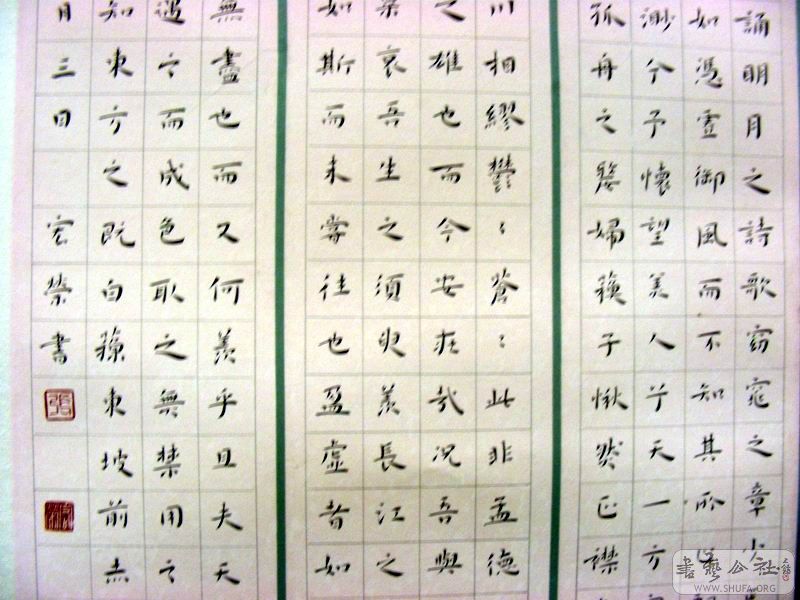 誦明月之詩歌窈窕之章少
如憑虛御風而不知其所
渺兮予懷望美人兮天一方
孤舟之嫠婦蘇子愀然正襟
川相繆鬱〻蒼〻此非孟德
之雄也而今安在哉況吾與
粟哀吾生之須臾羨長江之
如斯而未嘗往也盈虛者如
無盡也而又何羨乎且夫天
遇之而成色取之無禁用之
知東方之既白蘇東坡前赤
月三日 宏榮書
書藝公社
WWW.SHUFA.ORG